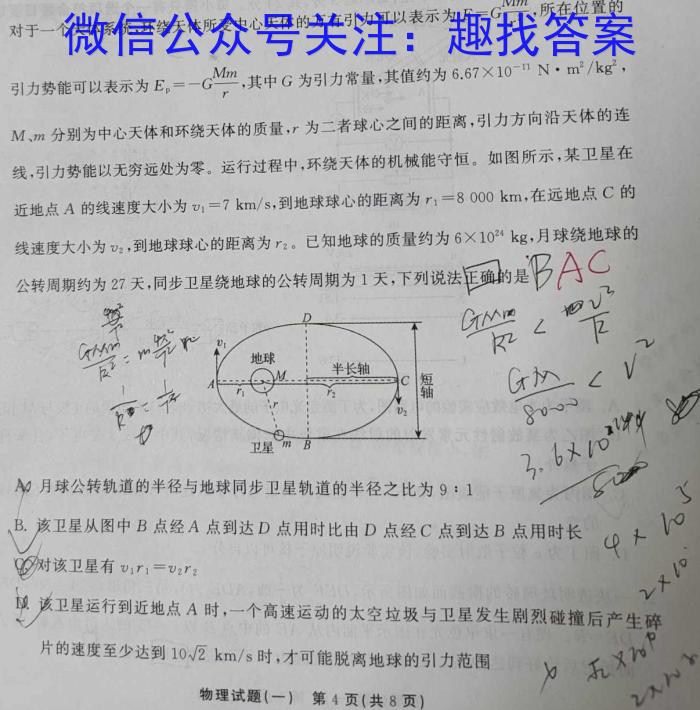 对于一个天体系统,环绕天体所受中心天体的万有引力可以表示为F=G Mm ,所在位置的
微信公众号关注:趣找答案
引力势能可以表示为 Eₚ=−G Mm/r,其中 G 为引力常量,其值约为 6.67×10⁻¹¹ N·m²/kg²,
M、m 分别为中心天体和环绕天体的质量,r 为二者球心之间的距离,引力方向沿天体的连
线,引力势能以无穷远处为零。运行过程中,环绕天体的机械能守恒。如图所示,某卫星在
近地点 A 的线速度大小为 v₁=7 km/s,到地球球心的距离为 r₁=8 000 km,在远地点 C 的
线速度大小为 v₂,到地球球心的距离为 r₂。已知地球的质量约为 6×10²⁴ kg,月球绕地球的
公转周期约为 27 天,同步卫星绕地球的公转周期为 1 天,下列说法正确的是
BAC
GMm/R² < mv²/R
GM/800 < v²
3.6×10
GMm/R² = m
D
v₁
地球
M
半长轴
A
r₁
r₂
C
v₂
短轴
卫星
m
B
A. 月球公转轨道的半径与地球同步卫星轨道的半径之比为 9∶1
B. 该卫星从图中 B 点经 A 点到达 D 点用时比由 D 点经 C 点到达 B 点用时长
4×10⁵
C. 对该卫星有 v₁r₁=v₂r₂
2×10
D. 该卫星运行到近地点 A 时,一个高速运动的太空垃圾与卫星发生剧烈碰撞后产生碎
片的速度至少达到 10√2 km/s 时,才可能脱离地球的引力范围
物理试题(一) 第 4 页(共 8 页)